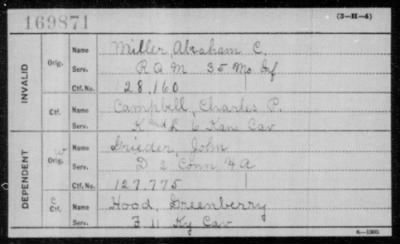 169871
(3-H-4)
INVALID
Orig.
Name Miller, Abraham C.
Serv. R Q M 35 Mo Inf
Ctf. No. 128,160
Ctf.
Name Campbell, Charles P.
Serv. K and L 6 Kan Cav
DEPENDENT
Orig.
Name Grieder, John
Serv. D 2 Conn H A
Ctf. No. 127,775
C Ctf.
Name Hood, Greenberry
Serv. F 11 Ky Cav